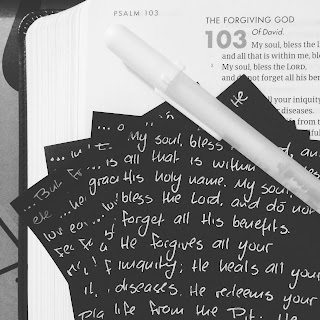 PSALM 103
THE FORGIVING GOD
Of David.
103 My soul, bless the L
and all that is within me, ble
2 My soul, bless the LORD,
and do not forget all his ben
your iniquity
diseases.
He
My soul, bless
is all that is within
grac His holy name. My soul,
bless the Lord, and do no
forget all His benefits.
He forgives all your
iniquity; He heals all your
diseases. He redeems your
life from the Pit; He